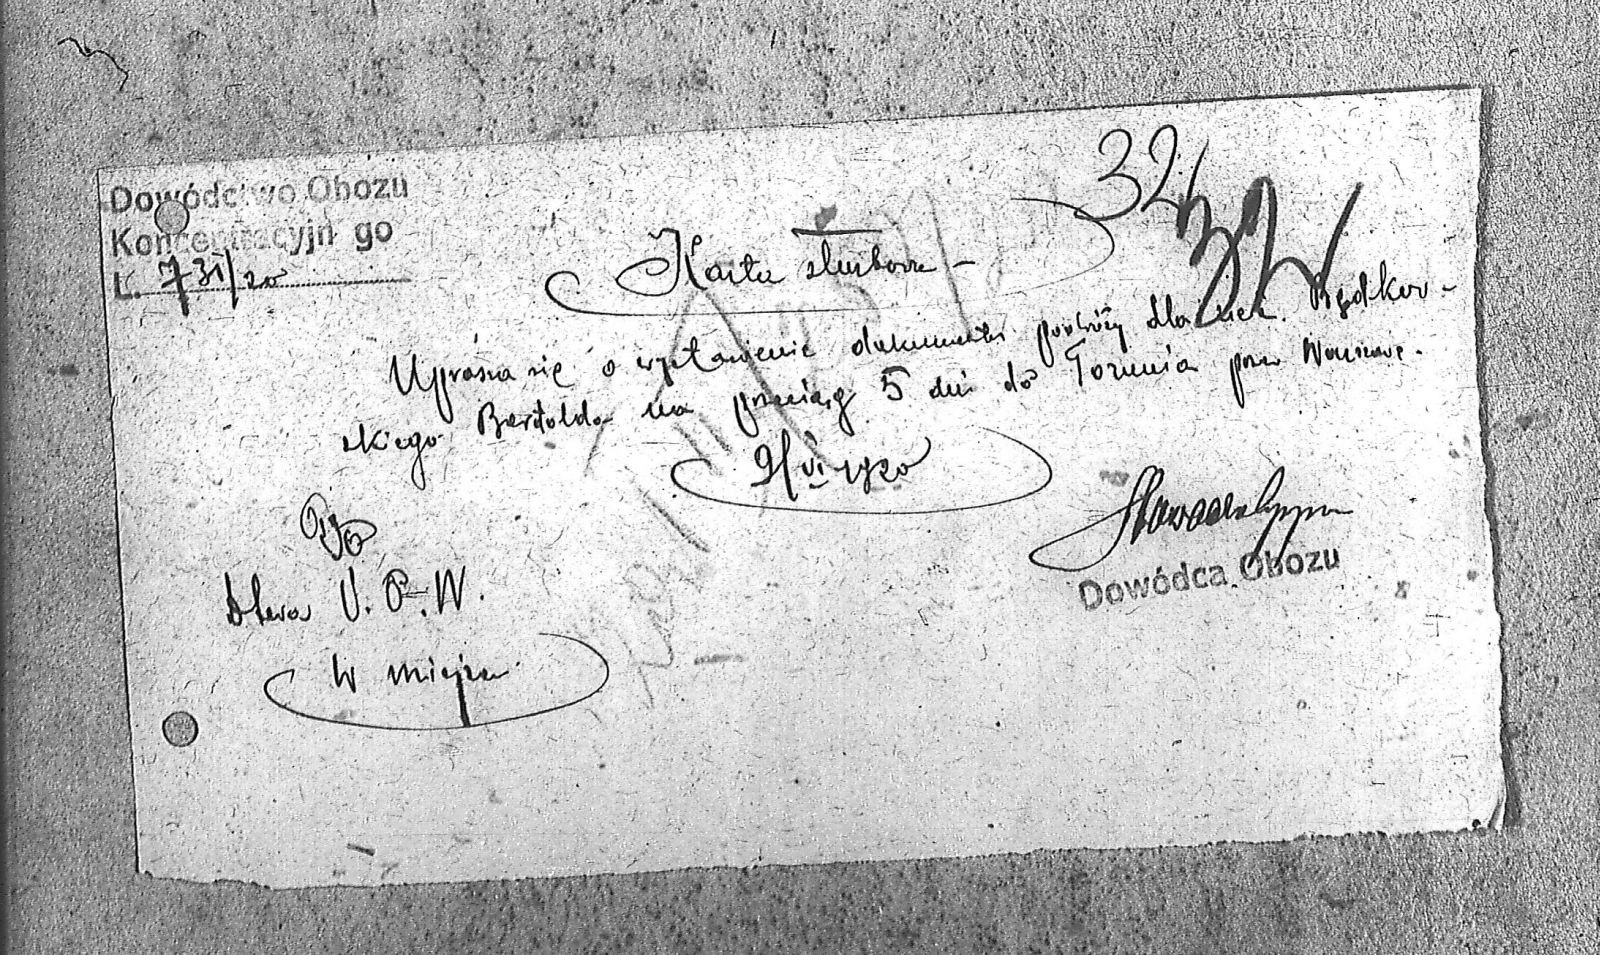 Dowództwo Obozu
Koncentracyjn go
L. 731/20
32
32
Karta służbowa –
Uprasza się o wystawienie dokumentu podróży dla
skiego Bertolda na przeciąg 5 dni do Torunia przez Warszawę.
9/VI 1920
Do
Dtwa U.O.W.
W miejscu
Dowódca Obozu